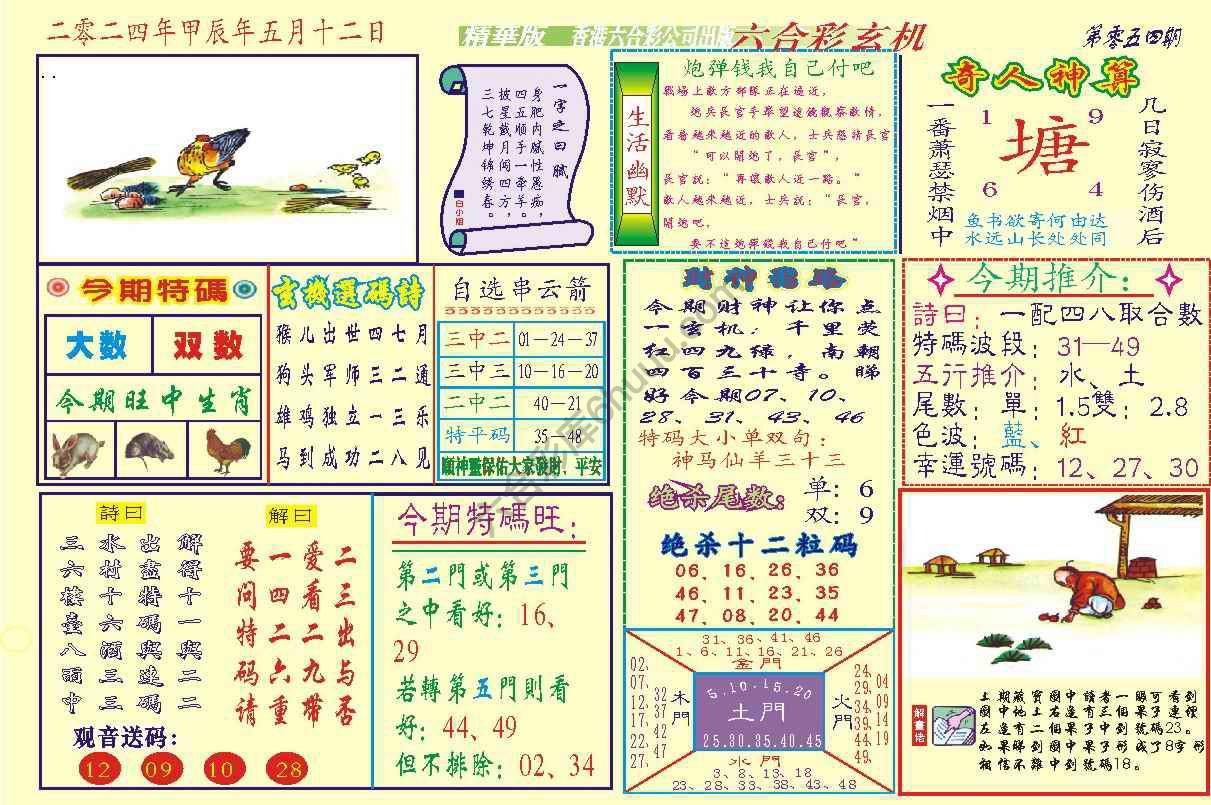 二零二四年甲辰年五月十二日
精華版 香港六合彩公司出版 六合彩玄机
第零五四期
一字之曰 腻
身肥内腻性愚痴，
四五顺手一牵羊。
披星戴月闯四方，
三七乾坤锦绣春。
白小姐
生活幽默
炮弹钱我自己付吧
戰場上敵方部隊正在逼近，
炮兵長官手舉望遠鏡觀察敵情，
看着越来越近的敵人，士兵懇請長官
“可以開炮了，長官”，
長官説：“再讓敵人近一路。”
敵人越来越近，士兵説：“長官，
開炮吧，
要不這炮彈錢我自己付吧”
奇人神算
一番萧瑟禁烟中
几日寂寥伤酒后
1 9
塘
6 4
鱼书欲寄何由达
水远山长处处同
今期特碼
大数 双数
今期旺中生肖
玄機選碼詩
猴儿出世四七月
狗头军师三二通
雄鸡独立一三乐
马到成功二八见
自选串云箭
三中二 01－24－37
三中三 10－16－20
二中二 40－21
特平码 35－48
願神靈保佑大家發財，平安
今期财神让你点
一玄机：千里荧
红四九绿，南朝
四百三十寺。睇
好今期07、10、
28、31、43、46
特码大小单双句：
神马仙羊三十三
绝杀尾数：
单：6
双：9
绝杀十二粒码
06、16、26、36
46、11、23、35
47、08、20、44
今期推介：
詩曰：一配四八取合數
特碼波段：31—49
五行推介：水、土
尾數：單：1.5雙：2.8
色波：藍、紅
幸運號碼：12、27、30
詩曰
解得十一與二二
出盡特碼與連碼
水村十六酒三三
三六樓臺八雨中
解曰
二三出与否
爱看二九带
一四二六重
要问特码请
观音送码：
12 09 10 28
今期特碼旺：
第二門或第三門
之中看好：16、
29
若轉第五門則看
好：44、49
但不排除：02、34
31、36、41、46
1、6、11、16、21、26
金門
02、07、12、17、22、27、
32、37、42、47
木門
5.10.15.20
土門
25.30.35.40.45
火門
24、29、34、39、44、49、
04、09、14、19
水門
3、8、13、18
23、28、33、38、43、48
解畫佬
上期藏寶圖中讀者一睇可看到
圖中地上右邊有三個果子連裡
左邊有二個果子中到號碼23。
如果睇到圖中果子形成了8字形
相信不難中到號碼18。